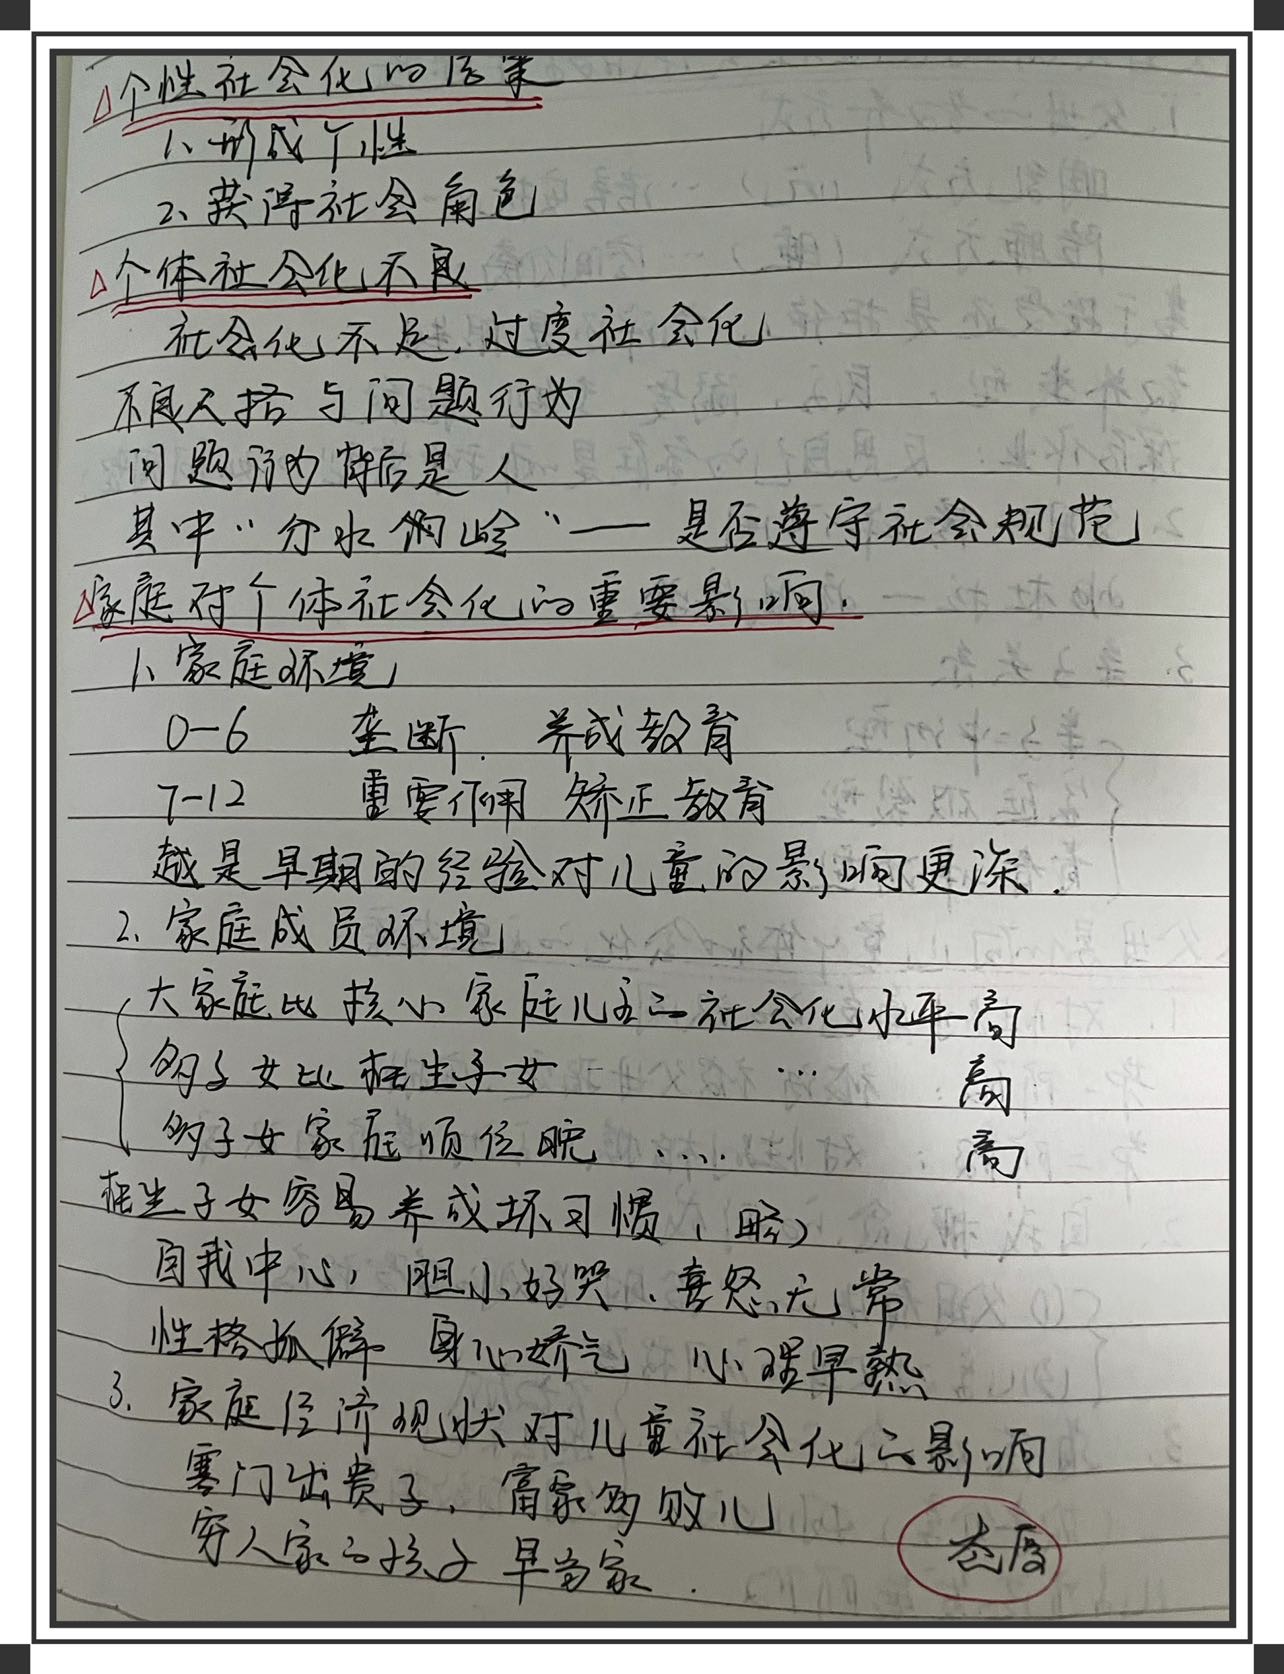 △个性社会化的后果
1、形成个性
2、获得社会角色
△个体社会化不良
社会化不足.过度社会化
不良人格与问题行为
问题行为背后是人
其中“分水岭”—是否遵守社会规范
△家庭对个体社会化的重要影响.
1、家庭环境
0-6 垄断. 养成教育
7-12 重要作用 矫正教育
越是早期的经验对儿童的影响更深.
2、家庭成员环境
大家庭比核小家庭儿童的社会化水平高
多子女比独生子女 …… 高
多子女家庭顺位晚 …… 高
独生子女容易养成坏习惯
自我中心, 胆小好哭.喜怒无常
性格孤僻 身心娇气 心理早熟
3、家庭经济现状对儿童社会化的影响
寒门出贵子.富家多败儿
穷人家的孩子早当家.
态度